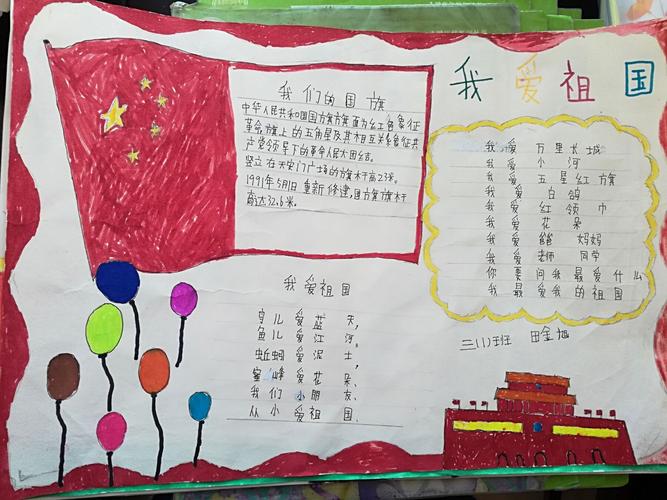 我爱祖国
我们的国旗
中华人民共和国国旗旗面为红色象征
革命旗上的五角星及其相互关系象征共
产党领导下的革命人民大团结。
竖立在天安门广场的旗杆高23米。
1991年5月1日重新修建,国旗旗杆
高达32.6米。
我爱 万里长城
我爱 小河
我爱 五星红旗
我爱 白鸽
我爱 红领巾
我爱 花朵
我爱 爸爸 妈妈
我爱 老师 同学
你要问我最爱什么
我最爱我的祖国
我爱祖国
鸟儿爱蓝天,
鱼儿爱江河。
蚯蚓爱泥土,
蜜蜂爱花朵、
我们小朋友、
从小爱祖国、
三(1)班 田金旭